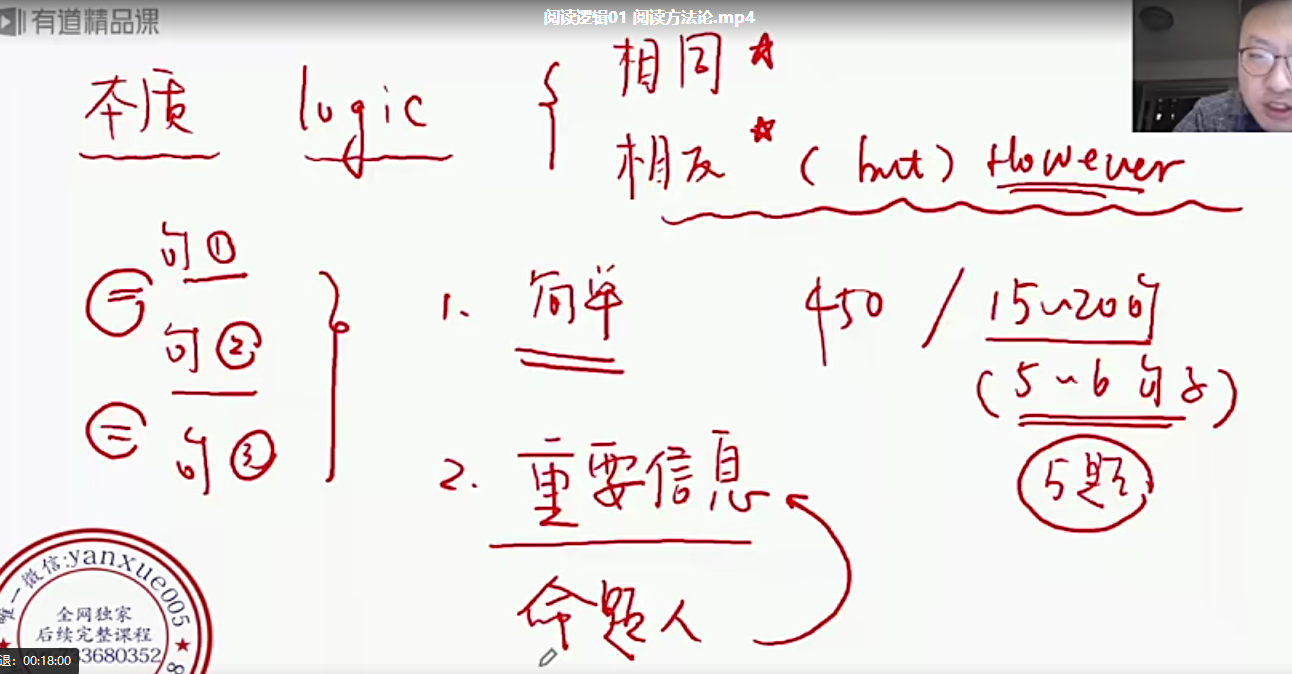 有道精品课
阅读逻辑01 阅读方法论.mp4
本质 logic { 相同 ☆
相反 ☆ (but) However
句①
= 句②
= 句③
1. 简单
450 / 15~20句
(5~6句子)
5题
2. 重要信息
命题人
唯一微信:yanxue005
全网独家
后续完整课程
33680352
退：00:18:00